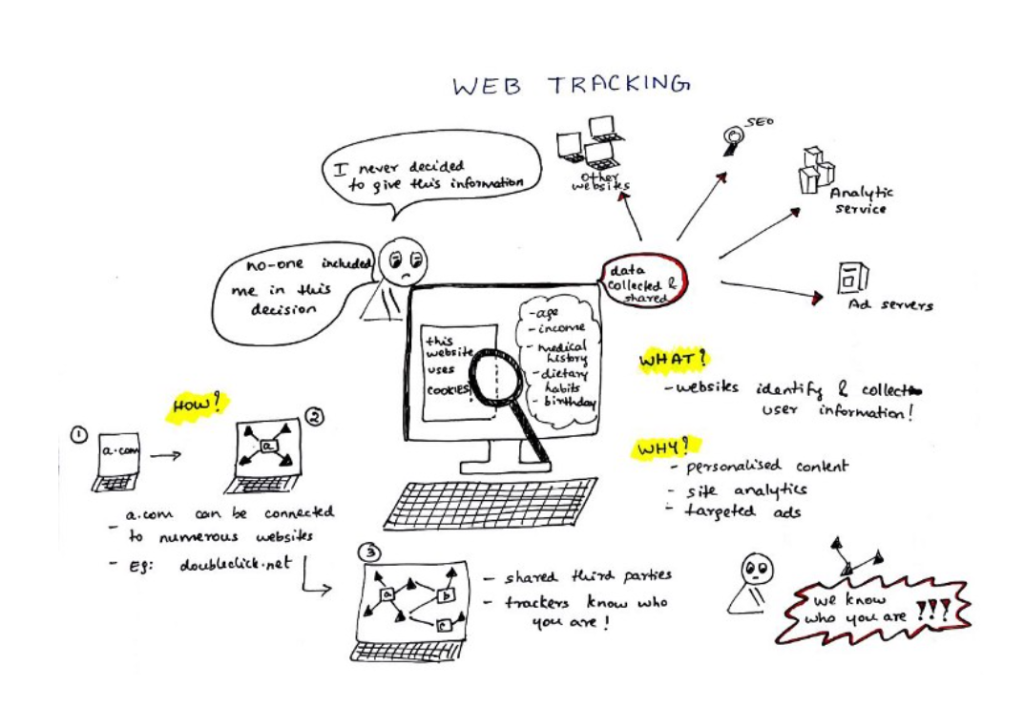 WEB TRACKING
I never decided
to give this information
no-one included
me in this
decision
Other
websites
SEO
Analytic
service
Ad servers
data
collected &
shared
this
website
uses
COOKIES!
-age
-income
-medical
history
-dietary
habits
- birthday
WHAT?
-websites identify & collect
user information!
WHY?
- personalised content
- site analytics
- targeted ads
HOW?
1
a.com
2
a
- a.com can be connected
to numerous websites
- Eg: doubleclick.net
3
a
b
c
- shared third parties
- trackers know who
you are!
we know
who you are ???